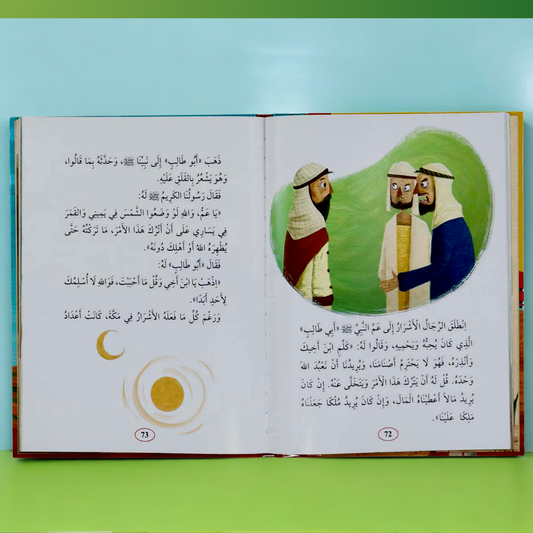 اِنْطَلَقَ الرِّجَالُ الْأَشْرَارُ إِلَى عَمِّ النَّبِيِّ ﷺ «أَبِي طَالِبٍ»
الَّذِي كَانَ يُحِبُّهُ وَيَحْمِيهِ، وَقَالُوا لَهُ: «كَلِّمِ ابْنَ أَخِيكَ
وَأَنْذِرْهُ، فَهُوَ لَا يَحْتَرِمُ أَصْنَامَنَا، وَيُرِيدُنَا أَنْ نَعْبُدَ اللهَ
وَحْدَهُ. قُلْ لَهُ أَنْ يَتْرُكَ هَذَا الْأَمْرَ وَيَتَخَلَّى عَنْهُ. إِنْ كَانَ
يُرِيدُ مَالًا أَعْطَيْنَاهُ الْمَالَ، وَإِنْ كَانَ يُرِيدُ مُلْكًا جَعَلْنَاهُ
مَلِكًا عَلَيْنَا».
72
ذَهَبَ «أَبُو طَالِبٍ» إِلَى نَبِيِّنَا ﷺ، وَحَدَّثَهُ بِمَا قَالُوا،
وَهُوَ يَشْعُرُ بِالْقَلَقِ عَلَيْهِ.
فَقَالَ رَسُولُنَا الْكَرِيمُ ﷺ لَهُ:
«يَا عَمُّ، وَاللهِ لَوْ وَضَعُوا الشَّمْسَ فِي يَمِينِي وَالْقَمَرَ
فِي يَسَارِي عَلَى أَنْ أَتْرُكَ هَذَا الْأَمْرَ، مَا تَرَكْتُهُ حَتَّى
يُظْهِرَهُ اللهُ أَوْ أَهْلِكَ دُونَهُ».
فَقَالَ «أَبُو طَالِبٍ» لَهُ:
«اِذْهَبْ يَا ابْنَ أَخِي وَقُلْ مَا أَحْبَبْتَ، فَوَاللهِ لَا أُسْلِمُكَ
لِأَحَدٍ أَبَدًا».
وَرَغْمَ كُلِّ مَا فَعَلَهُ الْأَشْرَارُ فِي مَكَّةَ، كَانَتْ أَعْدَادُ
73